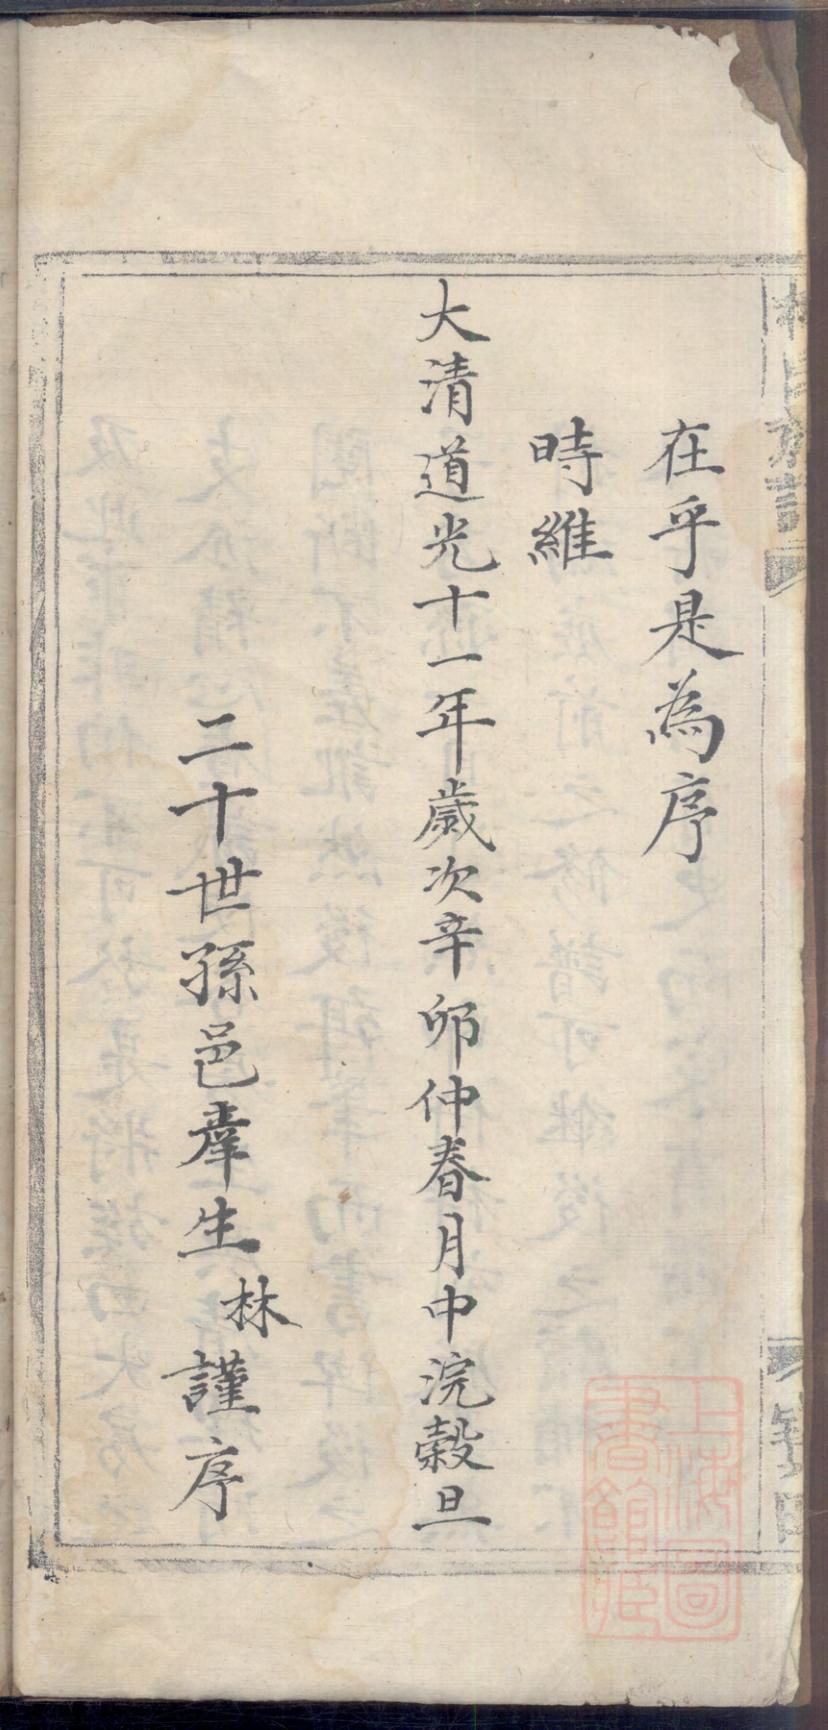 在乎是為序
時維
大清道光十一年歲次辛卯仲春月中浣穀旦
二十世孫邑庠生林謹序
上海圖書館藏